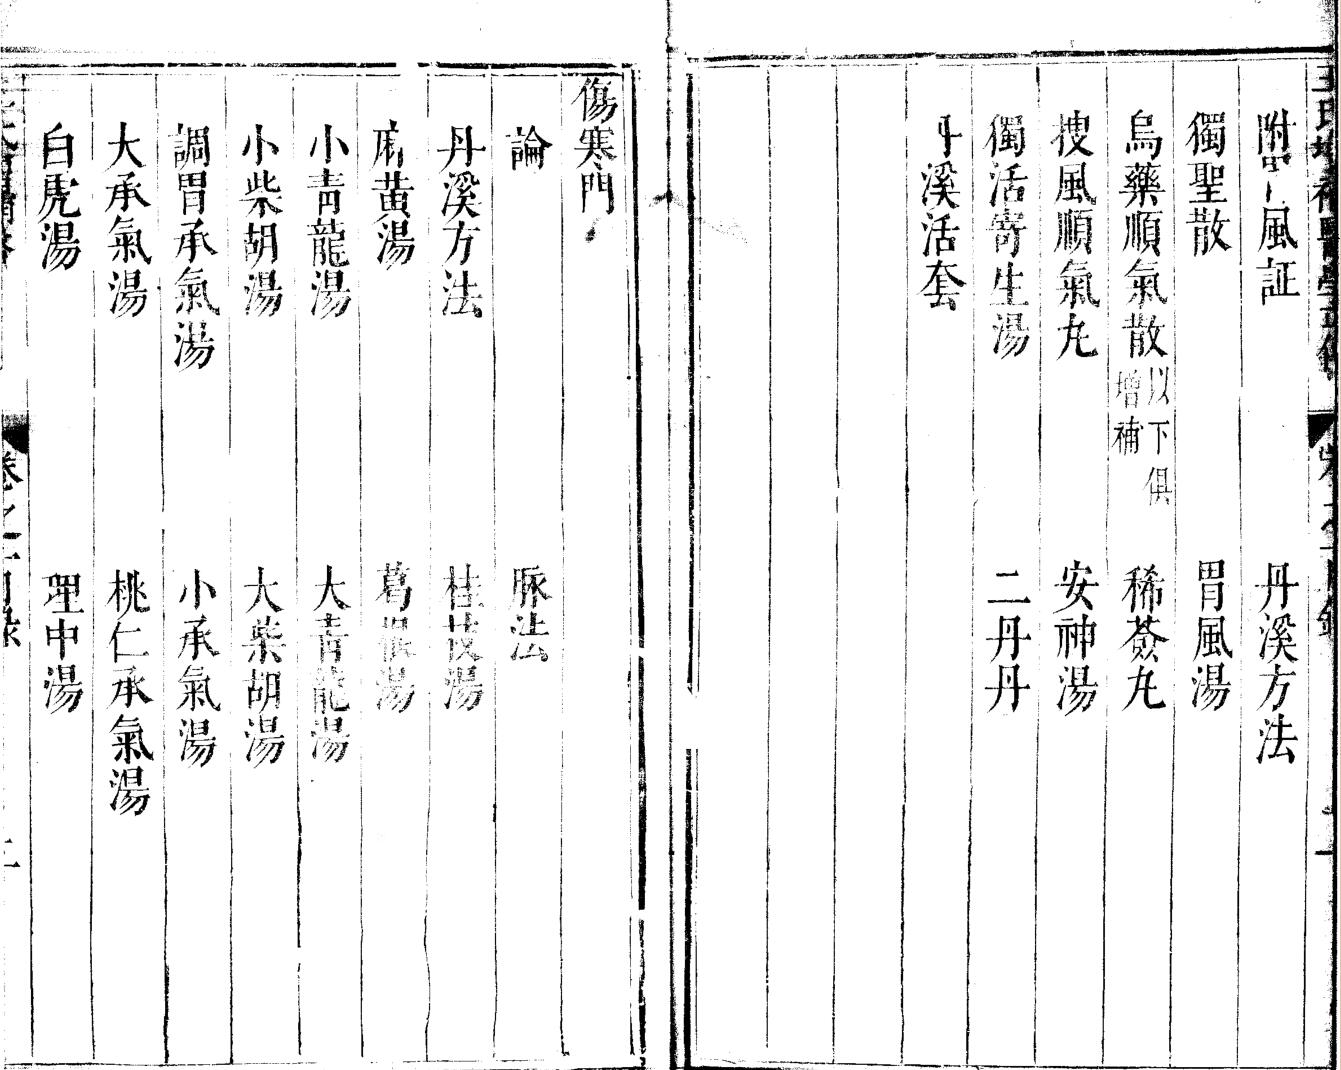 附中風証　丹溪方法
獨聖散　胃風湯
烏藥順氣散以下俱增補　稀薟丸
搜風順氣丸　安神湯
獨活寄生湯　二丹丹
丹溪活套
傷寒門
論　脉法
丹溪方法　桂枝湯
麻黃湯　葛根湯
小青龍湯　大青龍湯
小柴胡湯　大柴胡湯
調胃承氣湯　小承氣湯
大承氣湯　桃仁承氣湯
白虎湯　理中湯